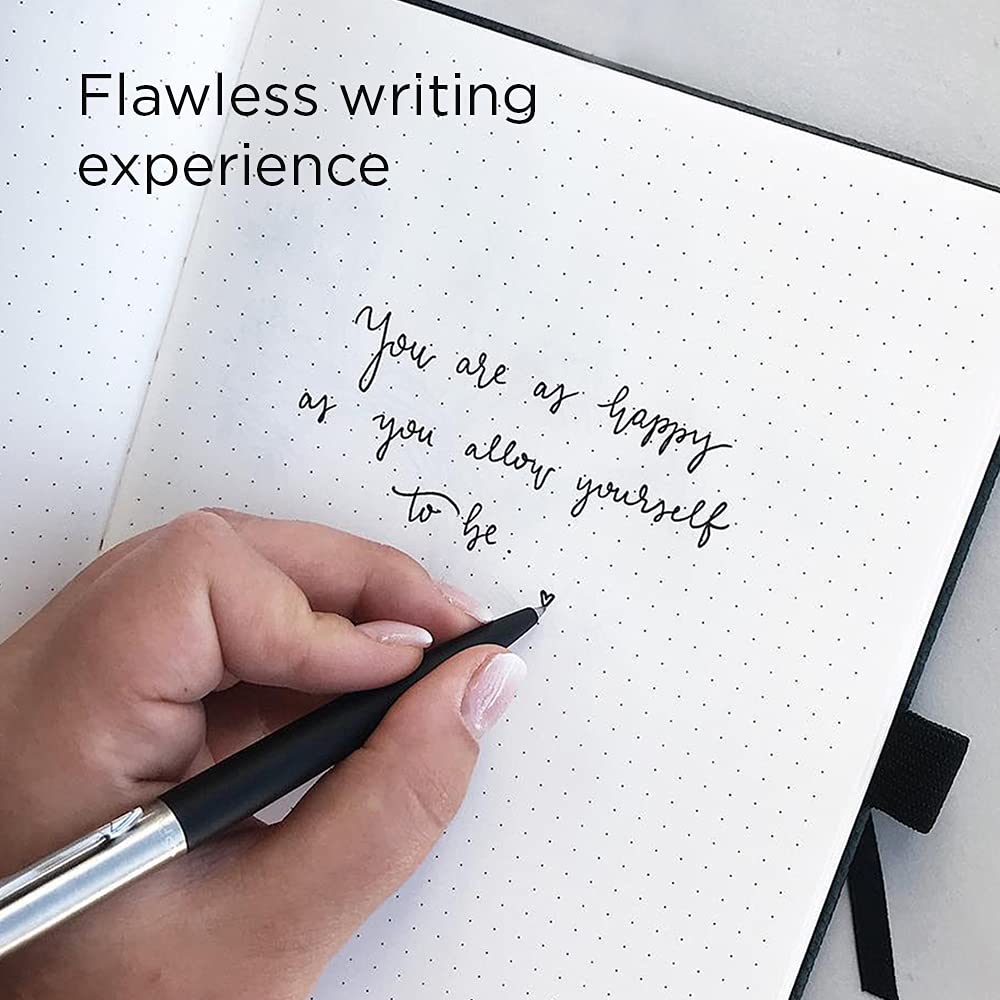 Flawless writing
experience
You are as happy
as you allow yourself
to be.